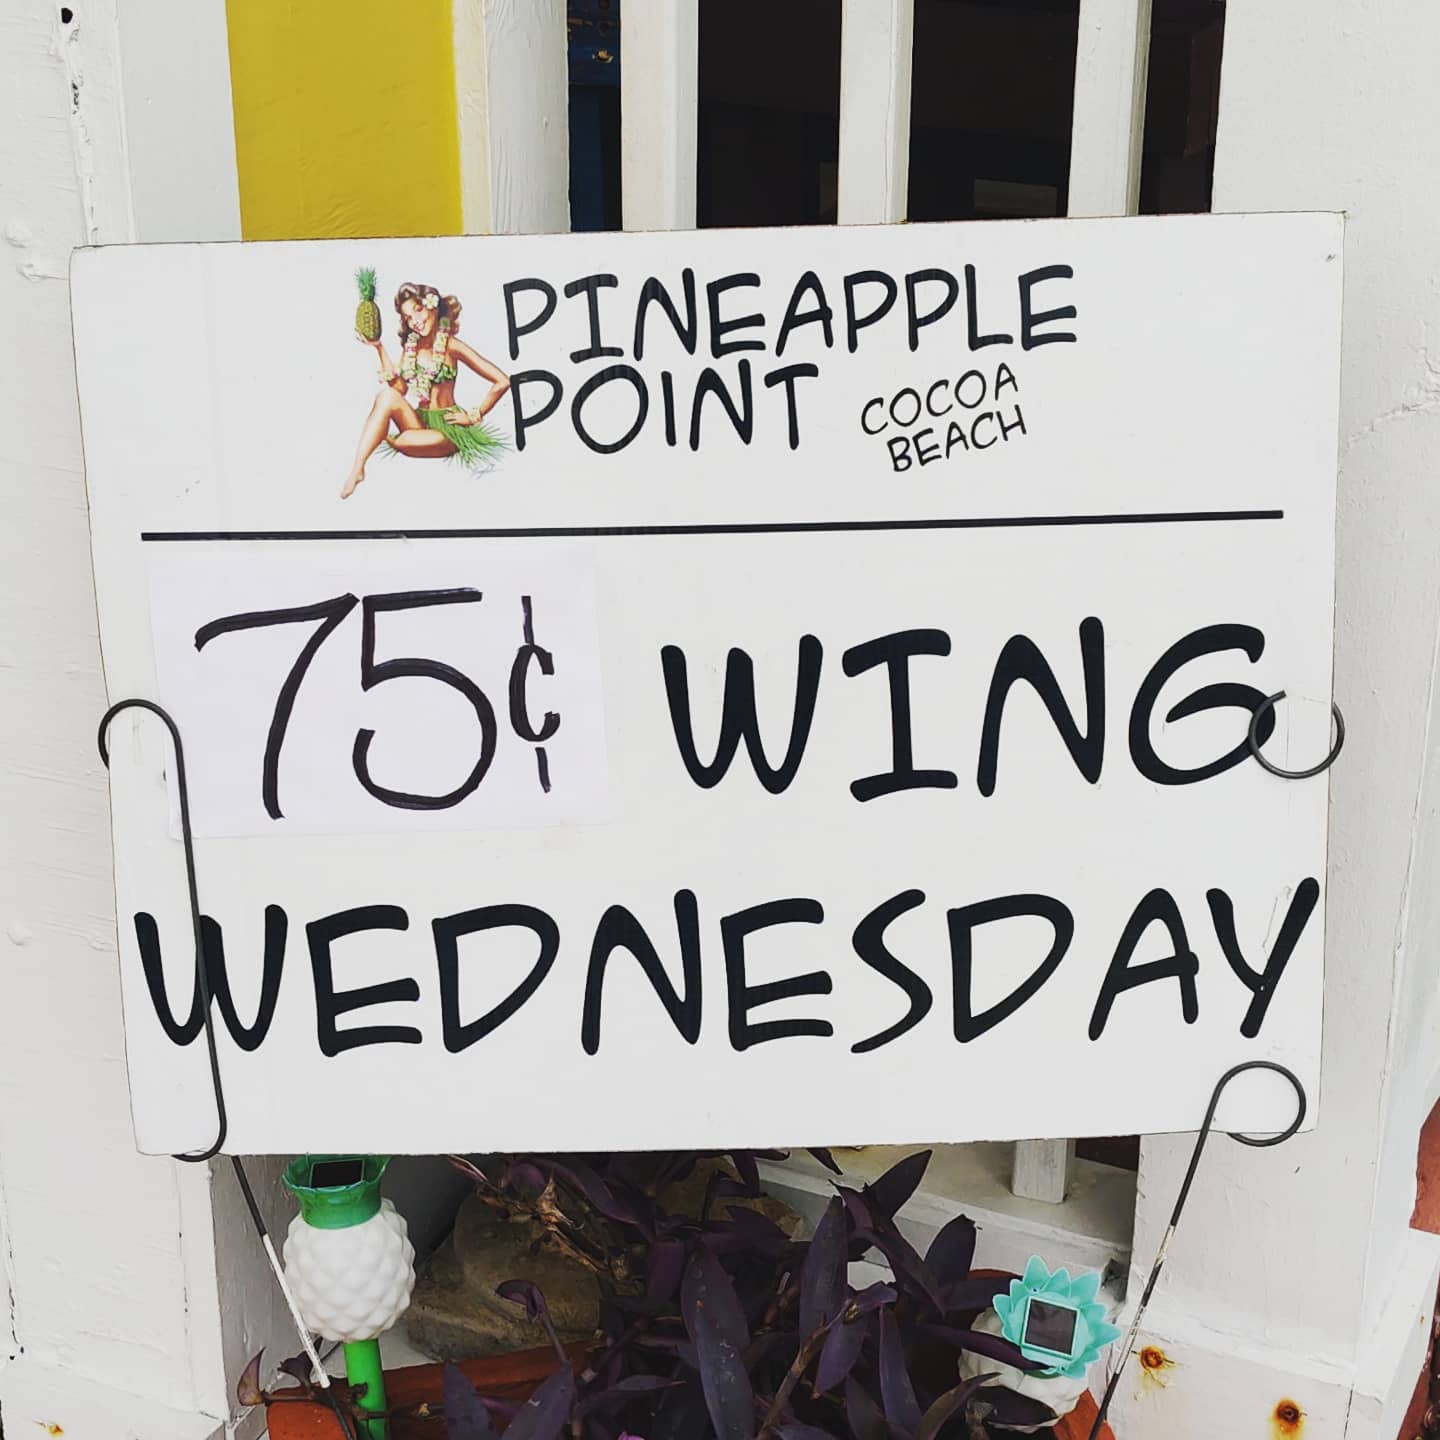 PINEAPPLE
POINT COCOA
BEACH
75¢ WING
WEDNESDAY